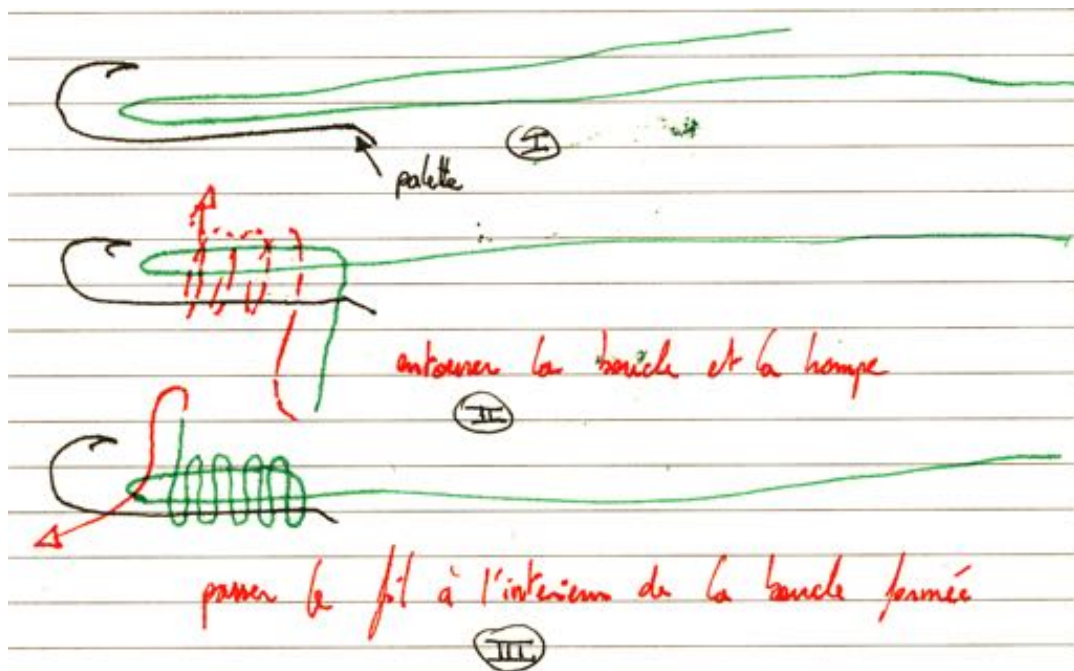 I
palette
entourer la boucle et la hampe
II
passer le fil à l'intérieur de la boucle formée
III